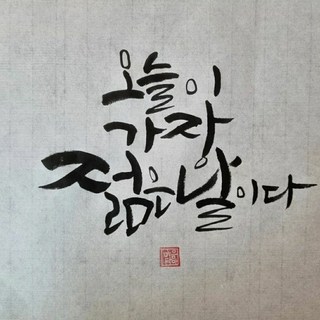 오늘이
가장
젊은 날이다